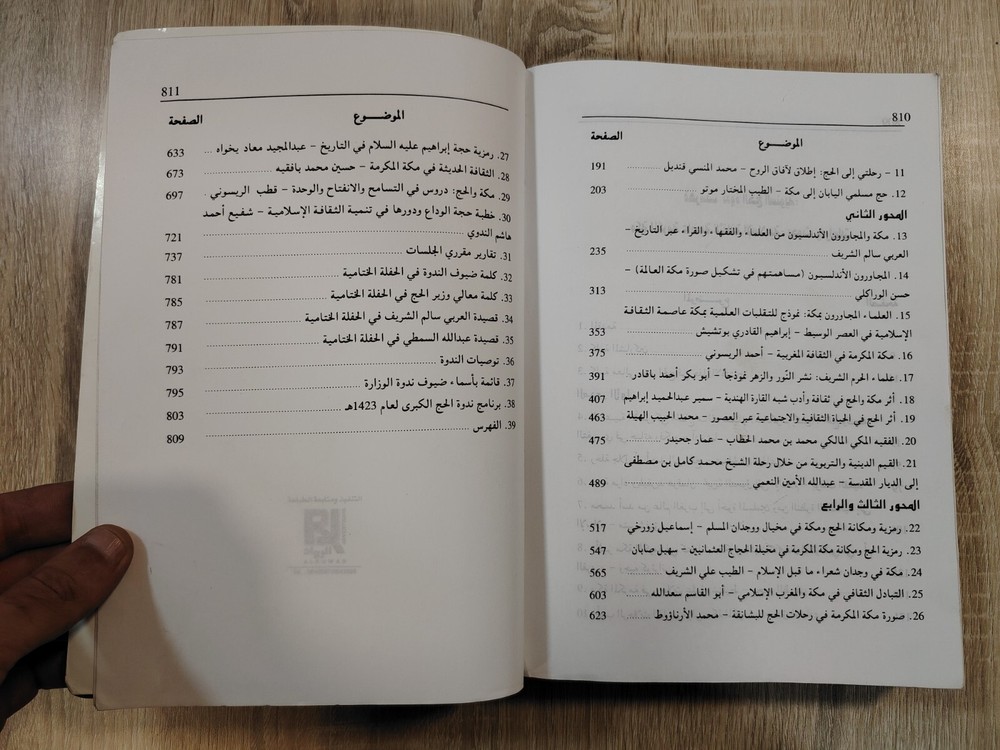 810
الموضــــوع
الصفحة
11 – رحلتي إلى الحج: إطلاق لآفاق الروح – محمد المنسي قنديل ............ 191
12. حج مسلمي اليابان إلى مكة – الطيب المختار موتو ............ 203
المحور الثاني
13. مكة والمجاورون الأندلسيون من العلماء والفقهاء والقراء عبر التاريخ –
العربي سالم الشريف ............ 235
14. المجاورون الأندلسيون (مساهمتهم في تشكيل صورة مكة العالمة) –
حسن الوراكلي ............ 313
15. العلماء المجاورون بمكة: نموذج للتقلبات العلمية بمكة عاصمة الثقافة
الإسلامية في العصر الوسيط – إبراهيم القادري بوتشيش ............ 353
16. مكة المكرمة في الثقافة المغربية – أحمد الريسوني ............ 375
17. علماء الحرم الشريف: نشر النّور والزهر نموذجاً – أبو بكر أحمد باقادر ... 391
18. أثر مكة والحج في ثقافة وأدب شبه القارة الهندية – سمير عبدالحميد إبراهيم 407
19. أثر الحج في الحياة الثقافية والاجتماعية عبر العصور – محمد الحبيب الهيلة 463
20. الفقيه المكي المالكي محمد بن محمد الحطاب – عمار جحيدر ............ 475
21. القيم الدينية والتربوية من خلال رحلة الشيخ محمد كامل بن مصطفى
إلى الديار المقدسة – عبدالله الأمين النعمي ............ 489
المحور الثالث والرابع
22. رمزية ومكانة الحج ومكة في مخيال ووجدان المسلم – إسماعيل زورخي 517
23. رمزية الحج ومكانة مكة المكرمة في مخيلة الحجاج العثمانيين – سهيل صابان 547
24. مكة في وجدان شعراء ما قبل الإسلام – الطيب علي الشريف ............ 565
25. التبادل الثقافي في مكة والمغرب الإسلامي – أبو القاسم سعدالله ............ 603
26. صورة مكة المكرمة في رحلات الحج للبشانقة – محمد الأرناؤوط ............ 623
811
الموضــــوع
الصفحة
27. رمزية حجة إبراهيم عليه السلام في التاريخ – عبدالمجيد معاد يخواه ... 633
28. الثقافة الحديثة في مكة المكرمة – حسين محمد بافقيه ............ 673
29. مكة والحج: دروس في التسامح والانفتاح والوحدة – قطب الريسوني . 697
30. خطبة حجة الوداع ودورها في تنمية الثقافة الإسلامية – شفيع أحمد
هاشم الندوي ............ 721
31. تقارير مقرري الجلسات ............ 737
32. كلمة ضيوف الندوة في الحفلة الختامية ............ 781
33. كلمة معالي وزير الحج في الحفلة الختامية ............ 785
34. قصيدة العربي سالم الشريف في الحفلة الختامية ............ 787
35. قصيدة عبدالله السمطي في الحفلة الختامية ............ 791
36. توصيات الندوة ............ 793
37. قائمة بأسماء ضيوف ندوة الوزارة ............ 795
38. برنامج ندوة الحج الكبرى لعام 1423هـ ............ 803
39. الفهرس ............ 809